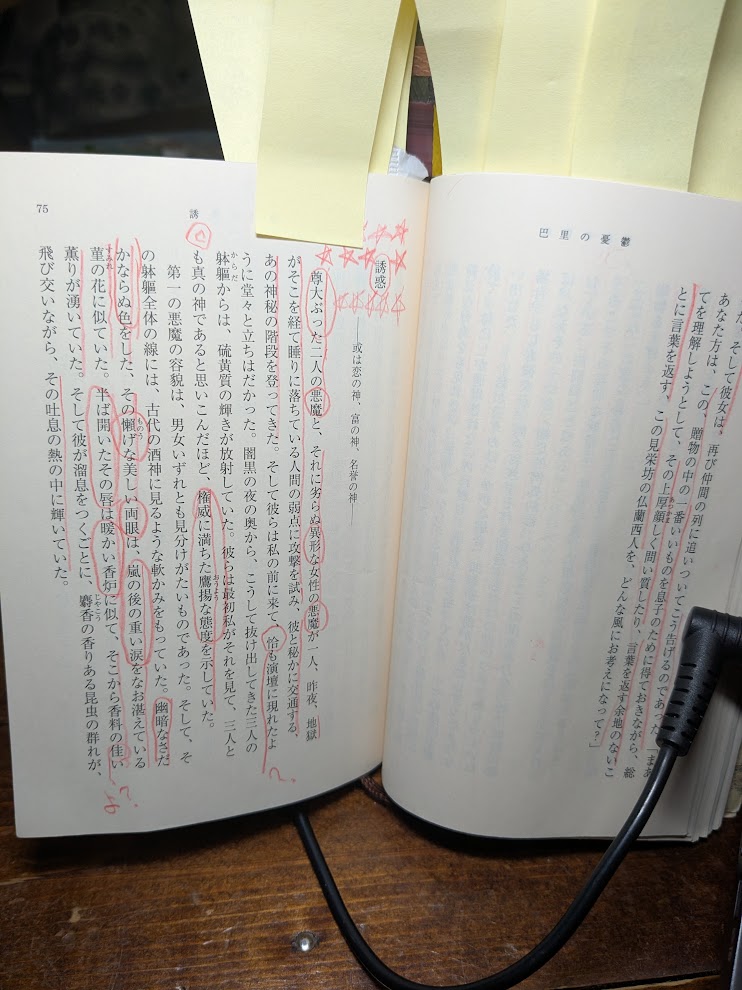 巴里の憂鬱
った。そして彼女は、再び仲間の列に追いついてこう告げるのであった。「まあ
あなた方は、この、贈物の中の一番いいものを息子のために得ておきながら、総
てを理解しようとして、その上厚顔しく問い質したり、言葉を返す余地のないこ
とに言葉を返す、この見栄坊の仏蘭西人を、どんな風にお考えになって？」
誘惑
――或は恋の神、富の神、名誉の神――
尊大ぶった二人の悪魔と、それに劣らぬ異形な女性の悪魔が一人、昨夜、地獄
がそこを経て睡りに落ちている人間の弱点に攻撃を試み、彼と秘かに交通する、
あの神秘の階段を登ってきた。そして彼らは私の前に来て、恰も演壇に現れたよ
うに堂々と立ちはだかった。闇黒の夜の奥から、こうして抜け出してきた三人の
躰軀からは、硫黄質の輝きが放射していた。彼らは最初私がそれを見て、三人と
も真の神であると思いこんだほど、権威に満ちた鷹揚な態度を示していた。
第一の悪魔の容貌は、男女いずれとも見分けがたいものであった。そして、そ
の躰軀全体の線には、古代の酒神に見るような軟かみをもっていた。幽暗なさだ
かならぬ色をした、その懶げな美しい両眼は、嵐の後の重い涙をなお湛えている
菫の花に似ていた。半ば開いたその唇は暖かい香炉に似て、そこから香料の佳い
薫りが湧いていた。そして彼が溜息をつくごとに、麝香の香りある昆虫の群れが、
飛び交いながら、その吐息の熱の中に輝いていた。
誘
75
？
よ？